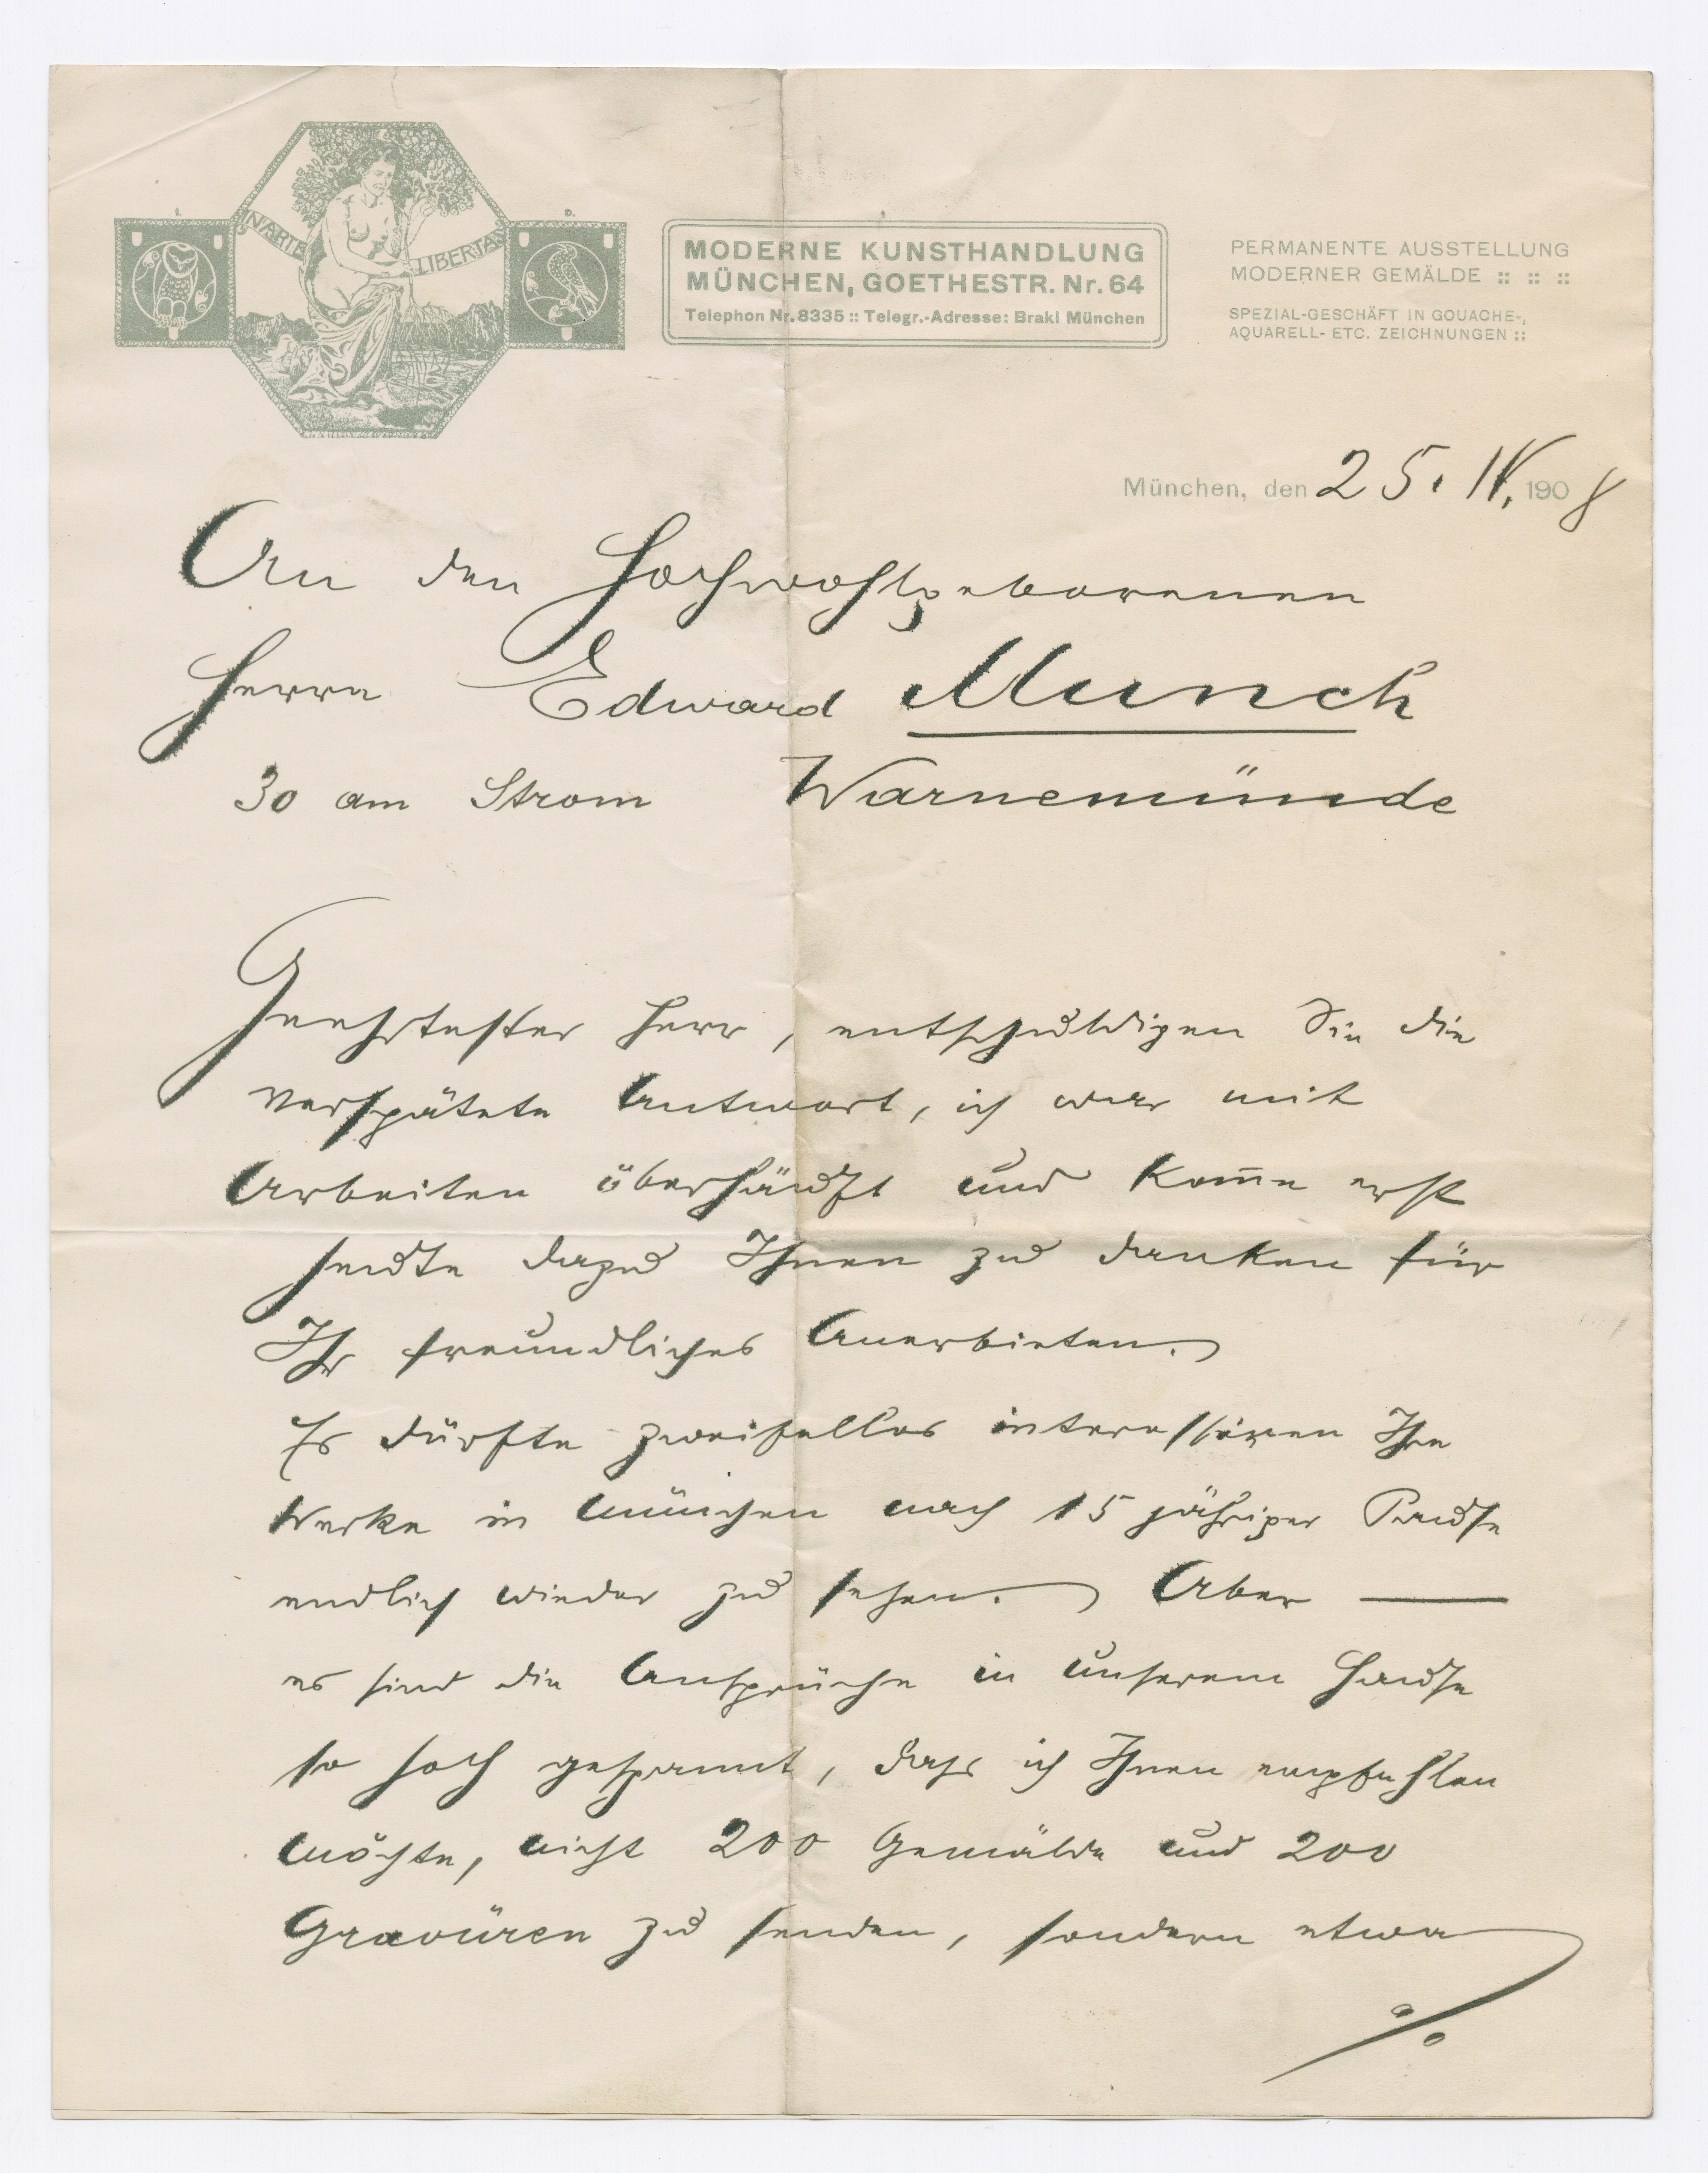 I.
D.
IN ARTE
LIBERTAS
MODERNE KUNSTHANDLUNG
MÜNCHEN, GOETHESTR. Nr. 64
Telephon Nr. 8335 :: Telegr.-Adresse: Brakl München
PERMANENTE AUSSTELLUNG
MODERNER GEMÄLDE :: :: ::
SPEZIAL-GESCHÄFT IN GOUACHE-,
AQUARELL- ETC. ZEICHNUNGEN ::
München, den 25. IV. 1908
An den Hochwohlgeborenen
Herrn Edward Munch
30 am Strom Warnemünde
Geehrtester Herr, entschuldigen Sie die
verspätete Antwort, ich war mit
Arbeiten überhäuft und kom̅e erst
heute dazu Ihnen zu danken für
Ihr freundliches Anerbieten.
Es dürfte zweifellos interessiren Ihre
Werke in München nach 15 jähriger Pause
endlich wieder zu sehen. Aber —
es sind die Ansprüche in unserem Hause
so hoch gespannt, dass ich Ihnen empfehlen
möchte, nicht 200 Gemälde und 200
Gravüren zu senden, sondern etwa
%